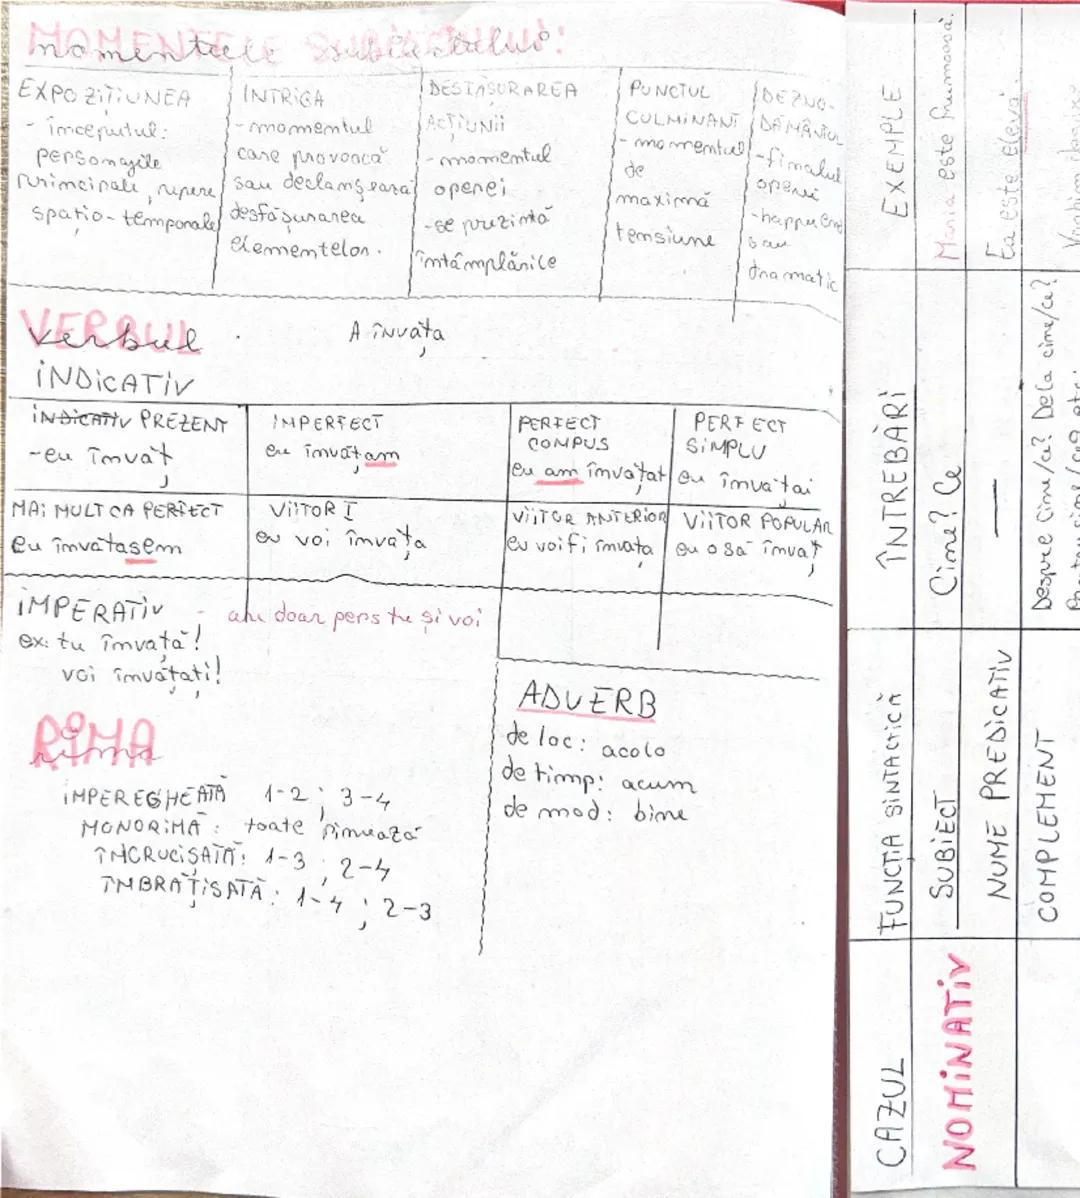 MOMENTELE SUBIECTULUI:
momentele subiectului:
EXPOZIȚIUNEA
- începutul:
personajele
principale, repere
spațio-temporale
INTRIGA
- momentul
care provoacă
sau declanșează
desfășurarea
elementelor.
DESFĂȘURAREA
ACȚIUNII
- momentul
operei
- se prezintă
întâmplările
PUNCTUL
CULMINANT
- momentul
de
maximă
tensiune
DEZNO-
DĂMÂNTUL
- finalul
operei
- happy end
sau
dramatic
VERBUL
verbul
A învăța
INDICATIV
INDICATIV PREZENT
- eu învăț
IMPERFECT
eu învățam
PERFECT
COMPUS
eu am învățat
PERFECT
SIMPLU
eu învățai
MAI MULT CA PERFECT
eu învățasem
VIITOR I
eu voi învăța
VIITOR ANTERIOR
eu voi fi învăța
VIITOR POPULAR
eu o să învăț
IMPERATIV - are doar pers tu și voi
ex: tu învață!
voi învățați!
RIMA
rima
IMPEREGHEATĂ 1-2 ; 3-4
MONORIMĂ: toate rimează
ÎNCRUCIȘATĂ: 1-3 ; 2-4
ÎMBRĂȚIȘATĂ: 1-4 ; 2-3
ADVERB
de loc: acolo
de timp: acum
de mod: bine
CAZUL
FUNCȚIA SINTACTICĂ
ÎNTREBĂRI
EXEMPLE
NOMINATIV
SUBIECT
Cine? Ce
Maria este frumoasă.
NUME PREDICATIV
—
Ea este elevă.
COMPLEMENT
Despre cine/ce? De la cine/ce?